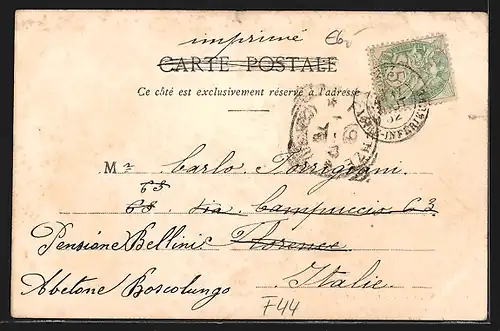 imprimé E6
CARTE POSTALE
Ce côté est exclusivement réservé à l'adresse
Mr Carlo Torrigiani
68 Via Campuccio
Pensione Bellini Florence
Abetone Boscolungo Italie
F44